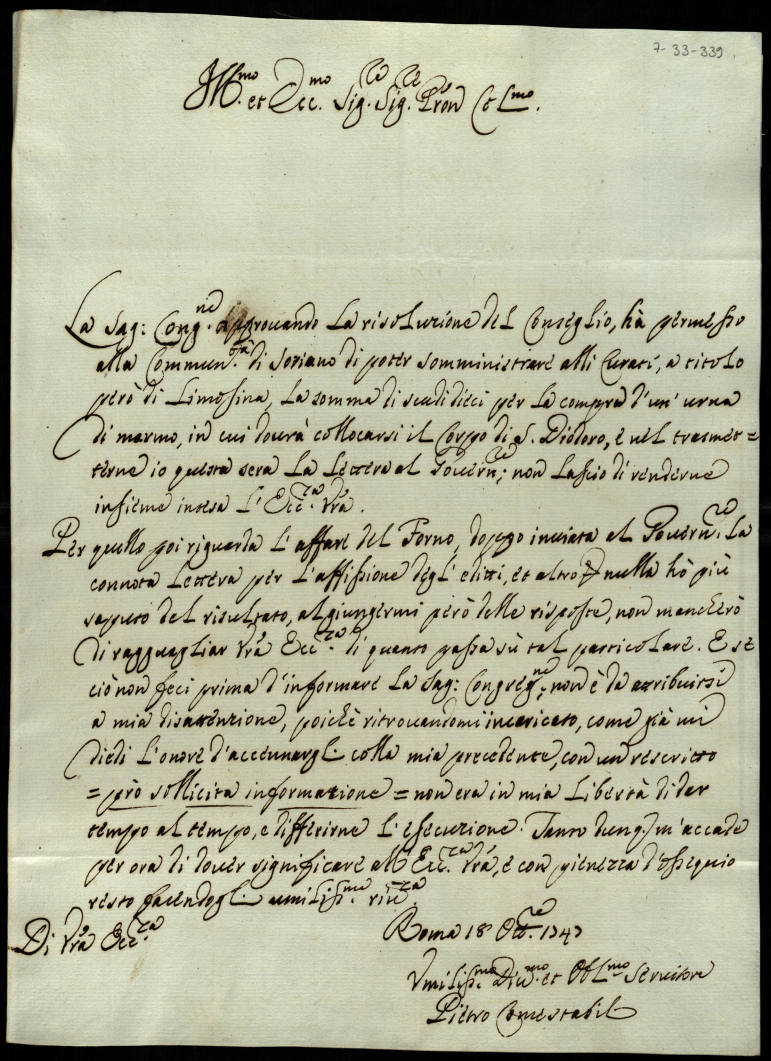 7-33-339
Ill.mo et Ecc.mo Sig.re Sig.re Pron Col.mo
La Sag: Cong.ne approvando la risoluzione del Conseglio, hà permesso
alla Commun.tà di Soriano di poter somministrare alli Curati, a titolo
però di Limosina, la somma di scudi dieci per la compra d'un' urna
di marmo, in cui dovrà collocarsi il Corpo di S. Diodoro, e nel trasmet=
terne io questa sera la Lettera al Govern.re; non lascio di renderne
insieme intesa l'Ecc.za Vrã.
Per quello poi riguarda l'affare del Forno, doppo inviata al Govern.re la
connota Lettera per l'affissione degl'editti, et altro nulla hò più
saputo del risultato, al giungermi però delle risposte, non mancherò
di ragguagliar Vrã Ecc.za di quanto passa sù tal particolare. E se
ciò non feci prima d'informare la Sag: Congreg.ne; non è da attribuirsi
a mia disattenzione, poichè ritrovandomi incaricato, come già mi
diedi l'onore d'accennargli colla mia precedente, con un rescritto
= prò sollicita informatione = non era in mia libertà di dar
tempo al tempo, e differirne l'esecuzione. Tanto dunq. m'accade
per ora di dover significare all'Ecc.za Vrã, e con pienezza d'ossequio
resto facendogli umiliss.ma riv.za
Di Vrã Ecc.za
Roma 18 Ott.re 1747
Umiliss.mo Div.mo et Obl.mo Servitore
Pietro Conestabili